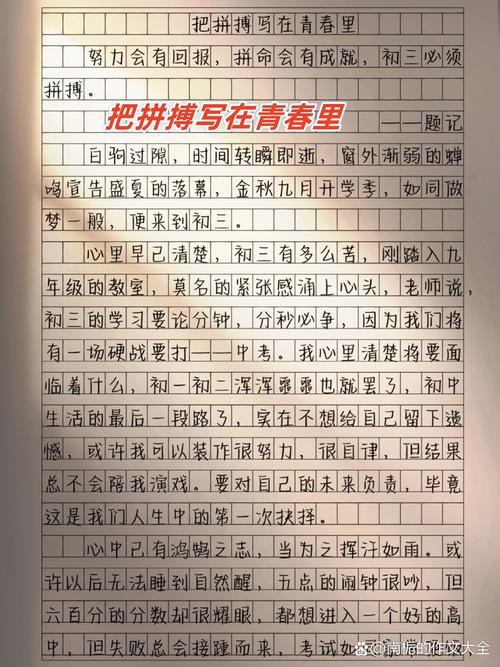 把拼搏写在青春里
努力会有回报，拼命会有成就，初三必须
拼搏。
把拼搏写在青春里
——题记
白驹过隙，时间转瞬即逝，窗外渐弱的蝉
鸣宣告盛夏的落幕，金秋九月开学季，如同做
梦一般，便来到初三。
心里早已清楚，初三有多么苦，刚踏入九
年级的教室，莫名的紧张感涌上心头，老师说，
初三的学习要论分钟，分秒必争，因为我们将
有一场硬战要打——中考。我心里清楚将要面
临着什么，初一初二浑浑噩噩也就罢了，初中
生活的最后一段路了，实在不想给自己留下遗
憾，或许我可以装作很努力，很自律，但结果
总不会陪我演戏。要对自己的未来负责，毕竟
这是我们人生中的第一次抉择。
心中已有鸿鹄之志，当为之挥汗如雨。或
许以后无法睡到自然醒，五点的闹钟很吵，但
六百分的分数却很耀眼，都想进入一个好的高
中，但失败总会接踵而来，考试如
@南栀的作文大全